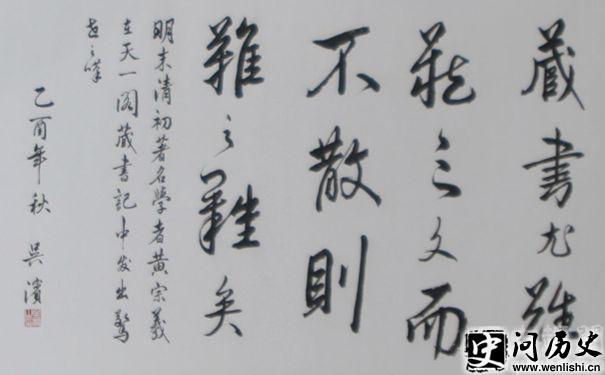 藏書尤難
藏之久而
不散則
難之難矣
明末清初著名學者黃宗羲
在天一閣藏書記中发出驚
世之嘆
乙酉年秋 吳濱
史 问历史
www.wenlishi.cn